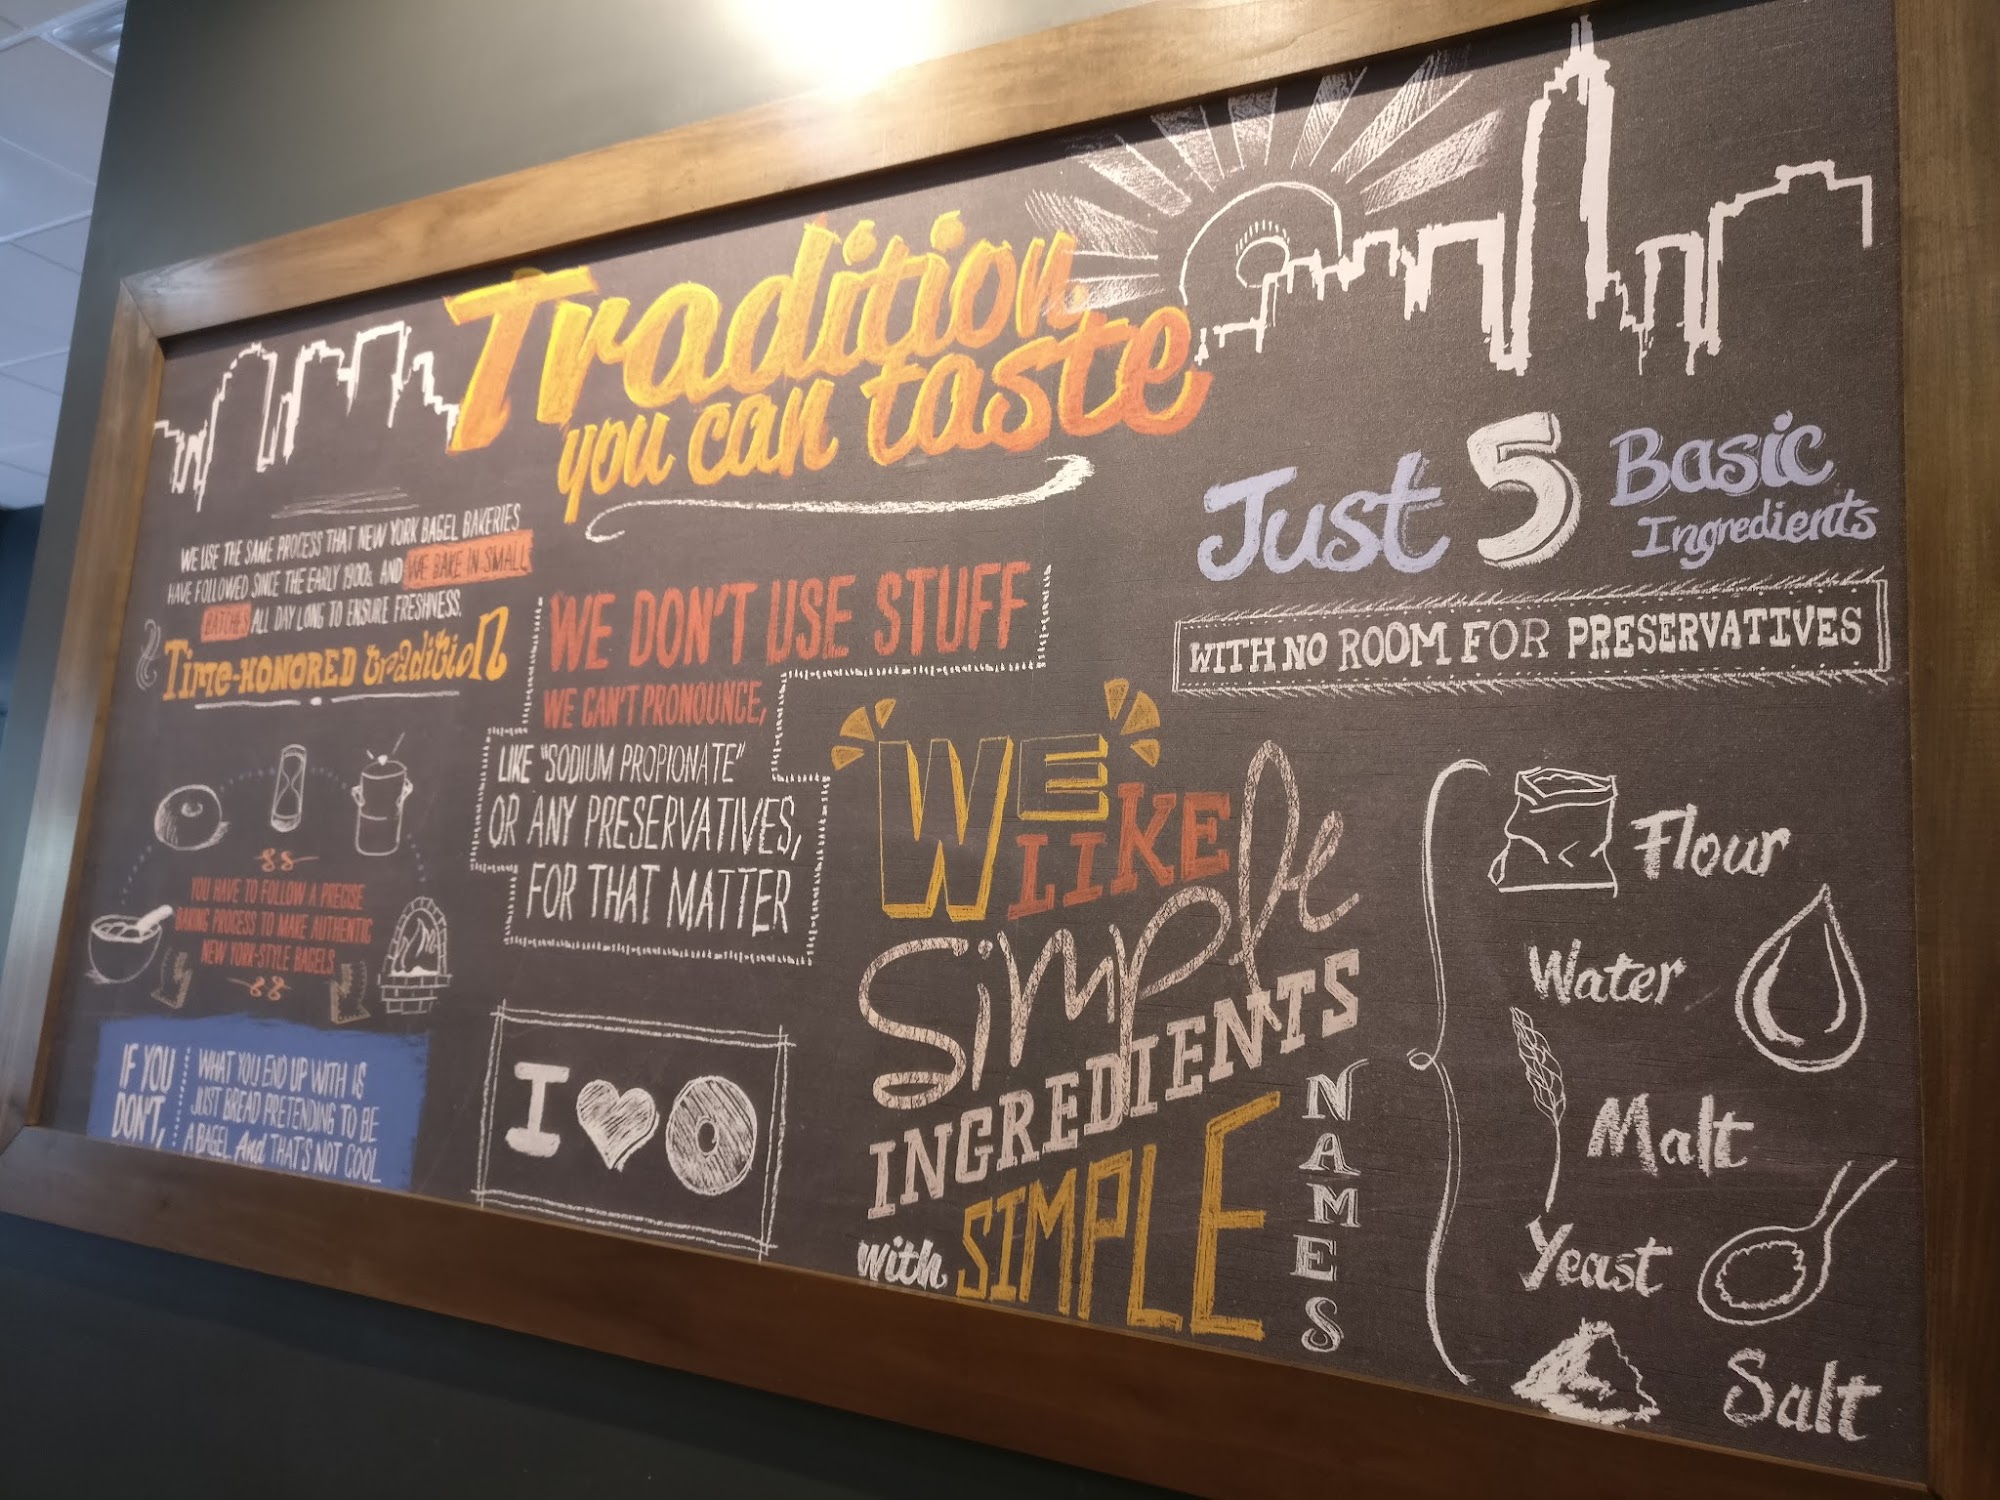 Tradition
you can taste
WE USE THE SAME PROCESS THAT NEW YORK BAGEL BAKERIES
HAVE FOLLOWED SINCE THE EARLY 1900s, AND WE BAKE IN SMALL
BATCHES ALL DAY LONG TO ENSURE FRESHNESS.
TIME-HONORED TRADITION
YOU HAVE TO FOLLOW A PRECISE
BAKING PROCESS TO MAKE AUTHENTIC
NEW YORK-STYLE BAGELS.
IF YOU
DON'T,
WHAT YOU END UP WITH IS
JUST BREAD PRETENDING TO BE
A BAGEL. And THAT'S NOT COOL
WE DON'T USE STUFF
WE CAN'T PRONOUNCE,
LIKE "SODIUM PROPIONATE"
OR ANY PRESERVATIVES,
FOR THAT MATTER
I
WE
LIKE
Simple
INGREDIENTS
with SIMPLE
NAMES
Just 5 Basic
Ingredients
WITH NO ROOM FOR PRESERVATIVES
Flour
Water
Malt
Yeast
Salt